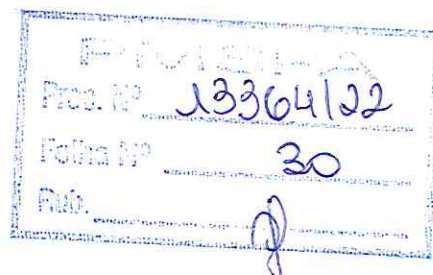 PMSPA
Proc. Nº 13364/22
Folha Nº 30
Rub.